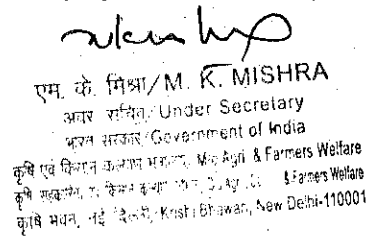 एम. के. मिश्रा/M. K. MISHRA
अवर सचिव/Under Secretary
भारत सरकार/Government of India
कृषि एवं किसान कल्याण Agri & Farmers Welfare
कृषि & Farmers Welfare
कृषि भवन, नई दिल्ली/Krishi Bhawan, New Delhi-110001